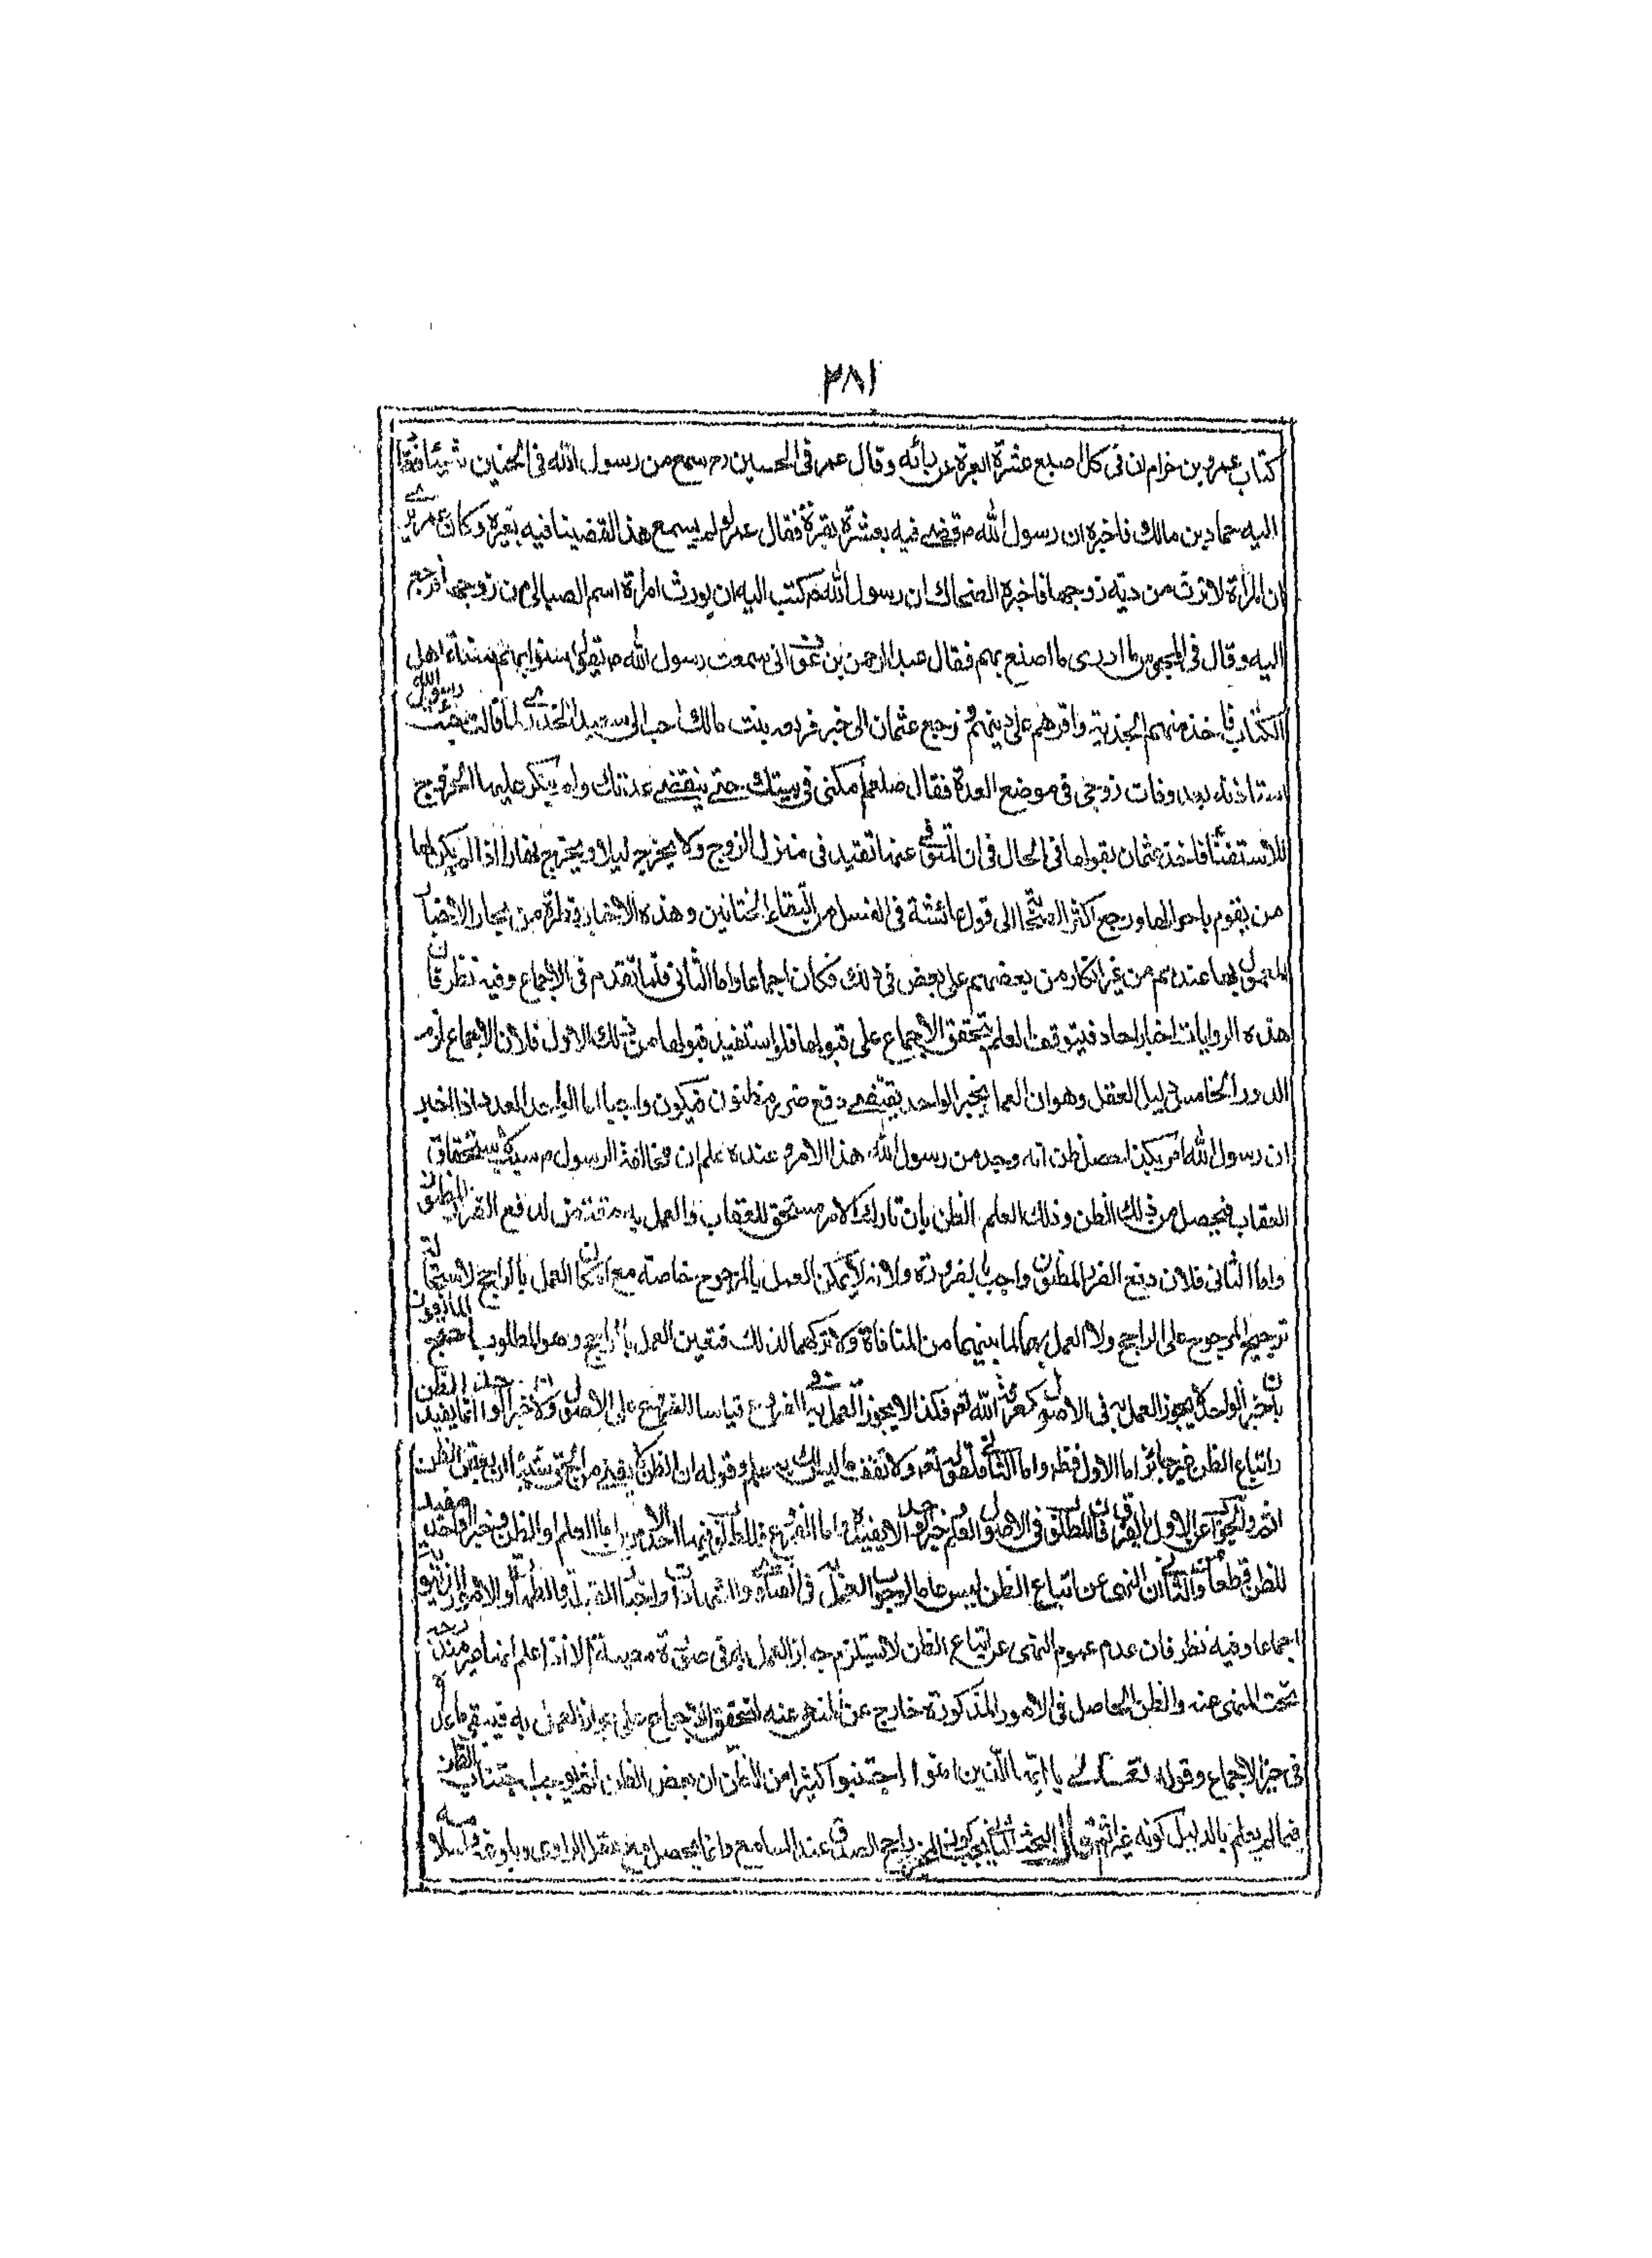 ٢٨١
كتاب عمرو بن خرام ان فى كل اصبع عشرة وقال عمر فى الجنين رحم سمع من رسول الله فى الجنين شيئا فقا
اليه حماد بن مالك فاخبره ان رسول الله ص قضى فيه بعشرة فقال عمر لو لم يسمع هذا لقضينا فيه بغيره وكان عمر يرى
ان المرأة لا ترث من دية زوجها فاخبره الضحاك ان رسول الله ص كتب اليه ان يورث امرأة اسم الصبالى من زوجها فرجع
اليه وقال فى المجوس ما ادرى ما اصنع بهم فقال عبد الرحمن بن عوف انى سمعت رسول الله ص يقول سنوا بهم سنة اهل
الكتاب فاخذ منهم الجذية واقرهم على دينهم ورجع عثمان الى خبر فريعه بنت مالك اخت ابى سعيد الخدرى لما قالت جئت رسول الله
استاذنه بعد وفات زوجى فى موضع العدة فقال صلعم امكثى فى بيتك حتى ينقضى عدتك ولم ينكر عليها الخروج
للاستفتا فاخذ عثمان بقولها فى الحال فى ان المتوفى عنها تعتد فى منزل الزوج ولا يخرج ليلا ويخرج نهارا اذا لم يكن لها
من يقوم باحوالها ورجع اكثر الصحابة الى قول عائشة فى الغسل من التقاء الختانين وهذه الاخبار قطرة من بحار الاخبار
المعمول بها عندهم من غير انكار من بعضهم على بعض فى ذلك فكان اجماعا واما الثانى فلما تقدم فى الاجماع وفيه نظر فان
هذه الروايات اخبار احاد فيتوقف العلم بتحقق الاجماع على قبولها فلو استفيد قبولها من ذلك الاول فلان الاجماع لزم
الدور الخامس دليل العقل وهو ان العمل بخبر الواحد يقتضى دفع ضرر مظنون فيكون واجبا اما الواحد العدل اذا اخبر
ان رسول الله امر بكذا حصل ظن انه وجد من رسول الله هذا الامر وعنده علم ان مخالفة الرسول ص سبب لاستحقاق
العقاب فيحصل من ذلك الظن وذلك العلم الظن بان تارك الامر مستحق للعقاب والعمل به مقتض لدفع الضرر المظنون
واما الثانى فلان دفع الضرر المظنون واجب بالضرورة ولانه لا يمكن العمل بالمرجوح خاصة مع امكان العمل بالراجح لاستحالة
ترجيح المرجوح على الراجح ولا العمل بهما لما بينهما من المنافاة ولا تركهما لذلك فتعين العمل بالراجح وهو المطلوب احتج المانعون
بان خبر الواحد لا يجوز العمل به فى الاصول كمعرفة الله تعه فكذا لا يجوز العمل به فى الفروع قياسا للفروع على الاصول ولان خبر الواحد انما يفيد الظن
واتباع الظن غير جائز اما الاول فظه واما الثانى فلقوله تعه ولا تقف ما ليس لك به علم وقوله ان الظن لا يغنى من الحق شيئا ان بعض الظن
اثم والجواب عن الاول الفرق فان المطلوب فى الاصول العلم وخبر الواحد لا يفيده واما الفروع فالمطلوب فيها احد الامرين اما العلم او الظن وخبر الواحد مفيد
للظن قطعا والثانى ان النهى عن اتباع الظن ليس عاما لوجوب العمل به فى الفتاوى والشهادات واخبار القبلة والطهارة والامور الدنيوية
اجماعا وفيه نظر فان عدم عموم النهى عن اتباع الظن لا يستلزم جواز العمل به فى صورة معينة الا اذا علم انها غير مندرجة
تحت المنهى عنه والظن الحاصل فى الامور المذكورة خارج عن المنهى عنه لتحقق الاجماع على جواز العمل به فيبقى ما عداه
فى حيز الاجماع وقوله تعالى يا ايها الذين امنوا اجتنبوا كثيرا من الظن ان بعض الظن اثم يوجب اجتناب الظن
فيما لم يعلم بالدليل كونه غير اثم قال البحث الثانى يجب كون الخبر راجح الصدق عند السامع وانما يحصل مع عقل الراوى وبلوغه واسلامه